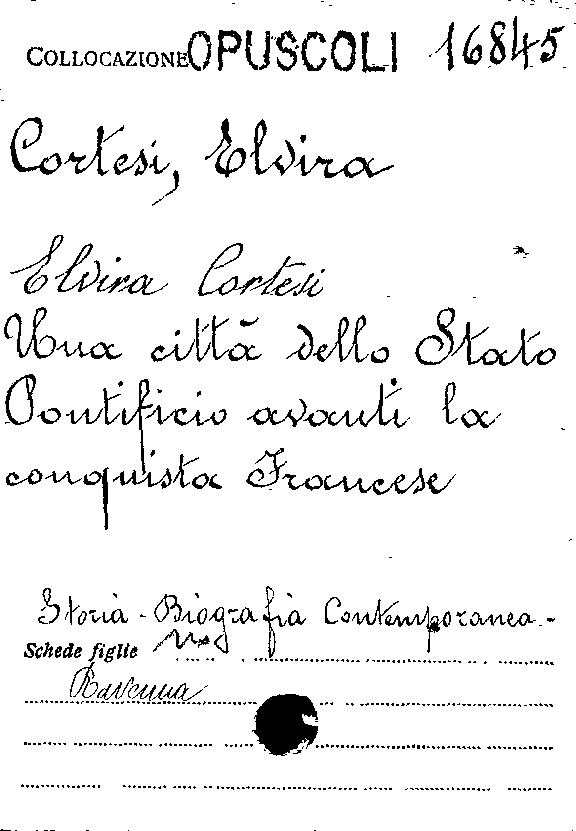 COLLOCAZIONE OPUSCOLI 16845
Cortesi, Elvira
Elvira Cortesi
Una città dello Stato
Pontificio avanti la
conquista Francese
Storia - Biografia Contemporanea -
Schede figlie
Ravenna